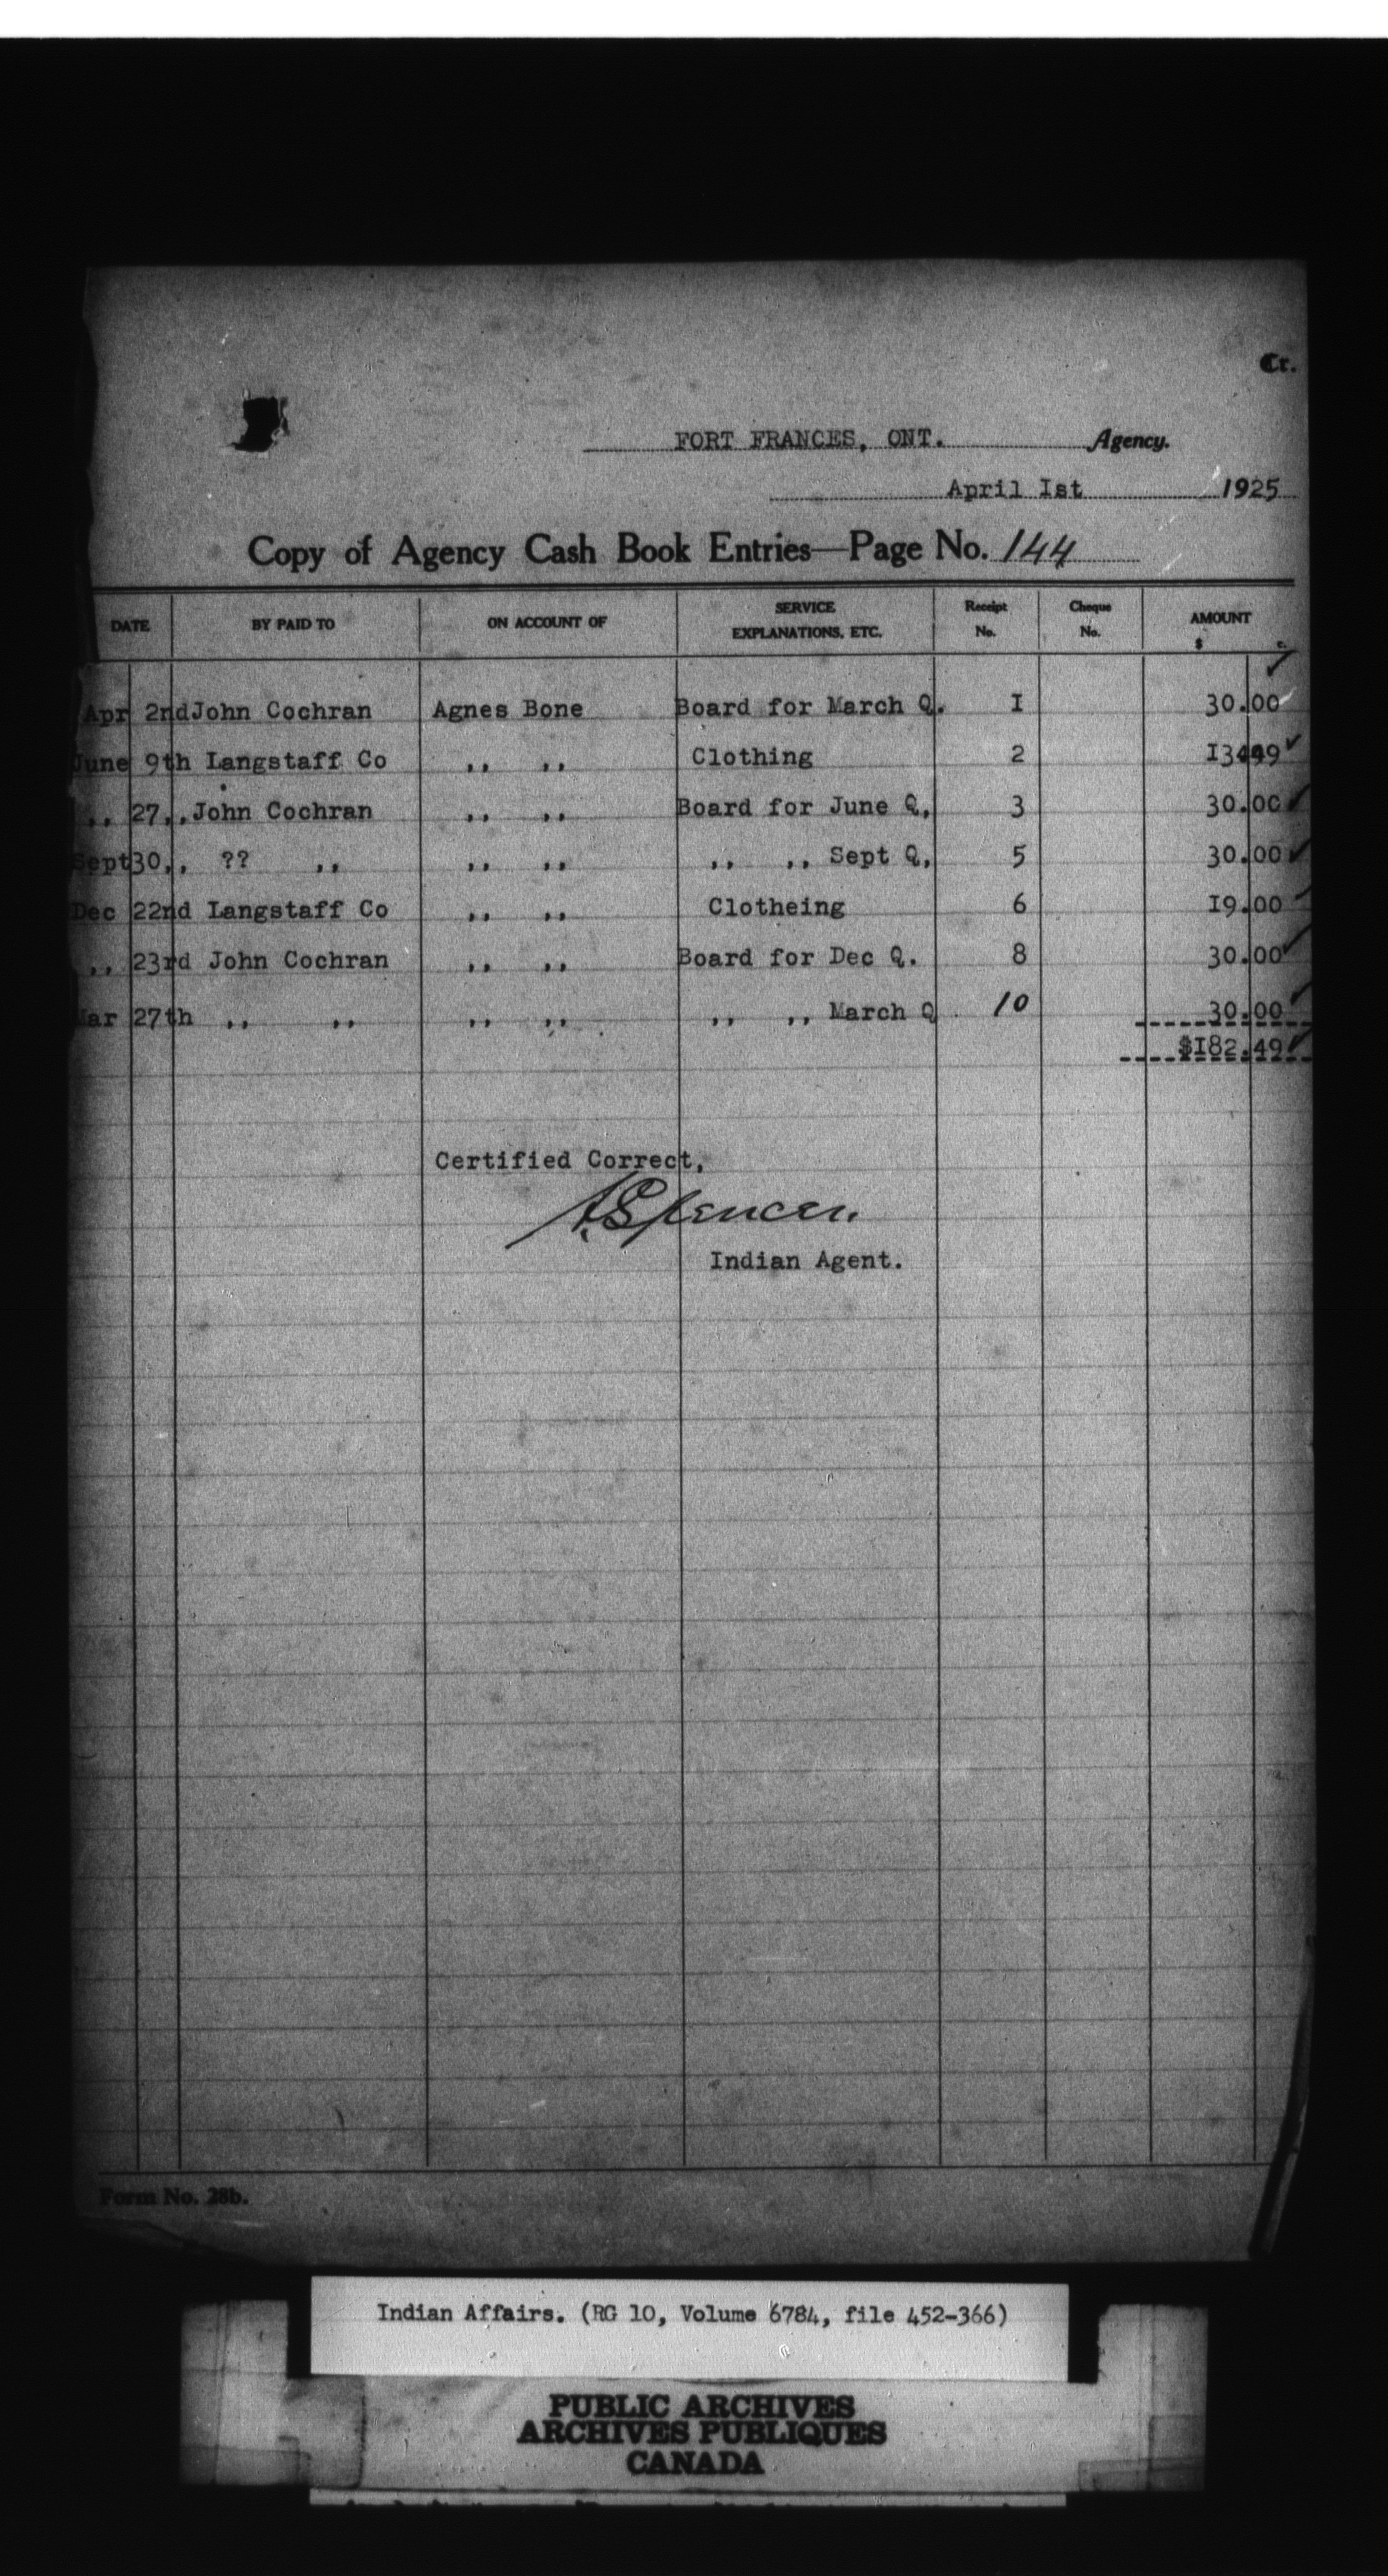 Cr.
FORT FRANCES, ONT. Agency.
April Ist 1925
Copy of Agency Cash Book Entries—Page No. 144
DATE BY PAID TO ON ACCOUNT OF SERVICE EXPLANATIONS, ETC. Receipt No. Cheque No. AMOUNT $ c.
Apr 2nd John Cochran Agnes Bone Board for March Q. I 30.00
June 9th Langstaff Co ,, ,, Clothing 2 I3.49
,, 27,, John Cochran ,, ,, Board for June Q, 3 30.00
Sept 30,, ?? ,, ,, ,, ,, ,, Sept Q, 5 30.00
Dec 22nd Langstaff Co ,, ,, Clotheing 6 I9.00
,, 23rd John Cochran ,, ,, Board for Dec Q. 8 30.00
Mar 27th ,, ,, ,, ,, ,, ,, March Q 10 30.00
$I82.49
Certified Correct,
A Spencer.
Indian Agent.
Form No. 28b.
Indian Affairs. (RG 10, Volume 6784, file 452-366)
PUBLIC ARCHIVES
ARCHIVES PUBLIQUES
CANADA